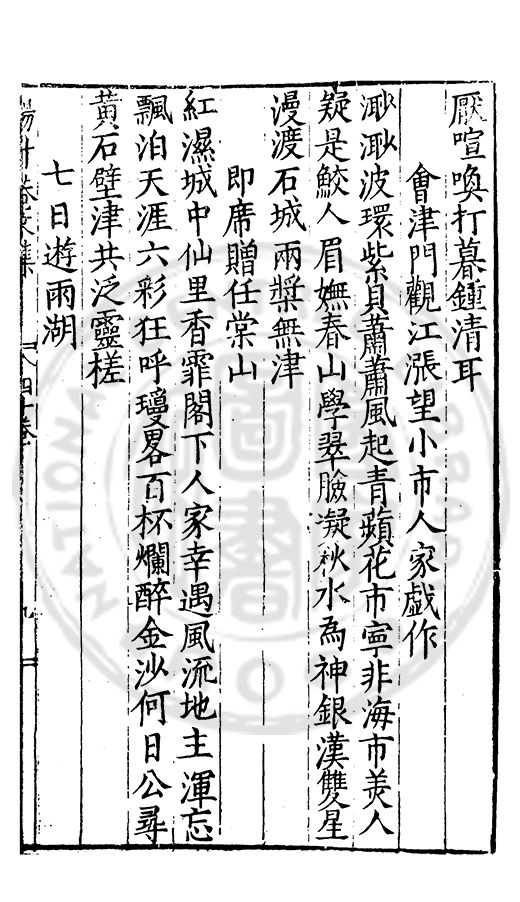 厭喧喚打暮鍾清耳
會津門觀江漲望小市人家戲作
渺渺波環紫貝蕭蕭風起青蘋花市寧非海市羙人
疑是鮫人眉嫵春山學翠臉凝秋水爲神銀漢雙星
漫渡石城兩槳無津
即席贈任棠山
紅濕城中仙里香霏閣下人家幸遇風流地主渾忘
飄泊天涯六彩狂呼瓊畧百杯爛醉金沙何日公尋
黃石壁津共泛靈槎
七日遊雨湖